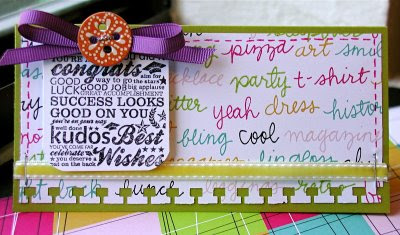 YOU'RE
congrats
way to go aim for the stars
LUCK GOOD JOB big applause
GREAT ACCOMPLISHMENT
SUCCESS LOOKS
GOOD ON YOU!
well done
kudos Best
YOU'VE COME FAR
celebrate
you deserve a
pat on the back
Wishes
pizza art smil
lace party t-shirt
itter yeah dress histor
bling cool magazin
lipgloss
lunch